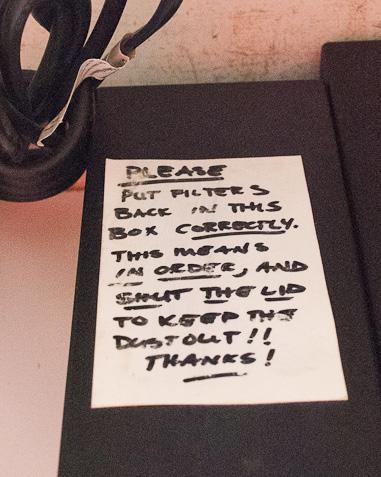 PLEASE
PUT FILTERS
BACK IN THIS
BOX CORRECTLY.
THIS MEANS
IN ORDER, AND
SHUT THE LID
TO KEEP THE
DUST OUT!!
THANKS!